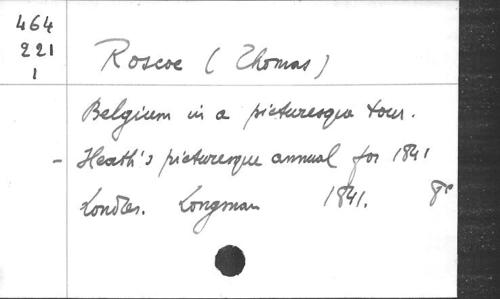 464
221
1
Roscoe (Thomas)
Belgium in a picturesque tour.
- Heath's picturesque annual for 1841
Londres. Longman 1841. 8º